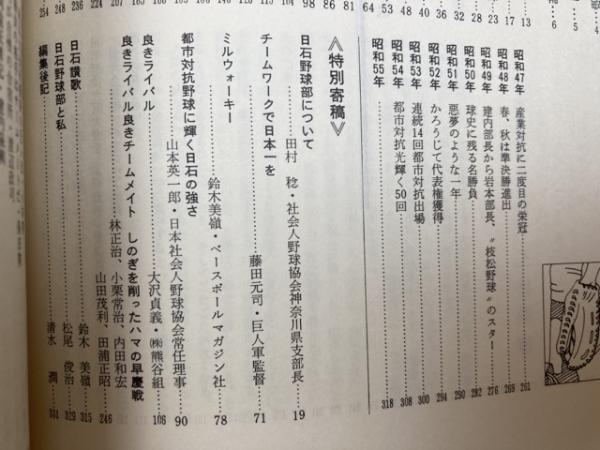 13
17
23
27
32
37
43
48
53
64
81
86
98
104
昭和47年 産業対抗に二度目の栄冠 261
昭和48年 春、秋は準決勝進出 269
昭和49年 建内部長から岩本部長、〝枝松野球〟のスター 276
昭和50年 球史に残る名勝負 282
昭和51年 悪夢のような一年 290
昭和52年 かろうじて代表権獲得 294
昭和53年 連続14回都市対抗出場 300
昭和54年 都市対抗光輝く50回 308
昭和55年 318
《特別寄稿》
日石野球部について
田村 稔・社会人野球協会神奈川県支部長 19
チームワークで日本一を
藤田元司・巨人軍監督 71
ミルウォーキー
鈴木美嶺・ベースボールマガジン社 78
都市対抗野球に輝く日石の強さ
山本英一郎・日本社会人野球協会常任理事 90
良きライバル
大沢貞義・㈱熊谷組 106
良きライバル良きチームメイト しのぎを削ったハマの早慶戦
林正治、小栗常治、内田和宏
山田茂利、田浦正昭 246
日石讃歌 鈴木 美嶺 315
日石野球部と私 松尾 俊治 329
編集後記 清水 潤 331